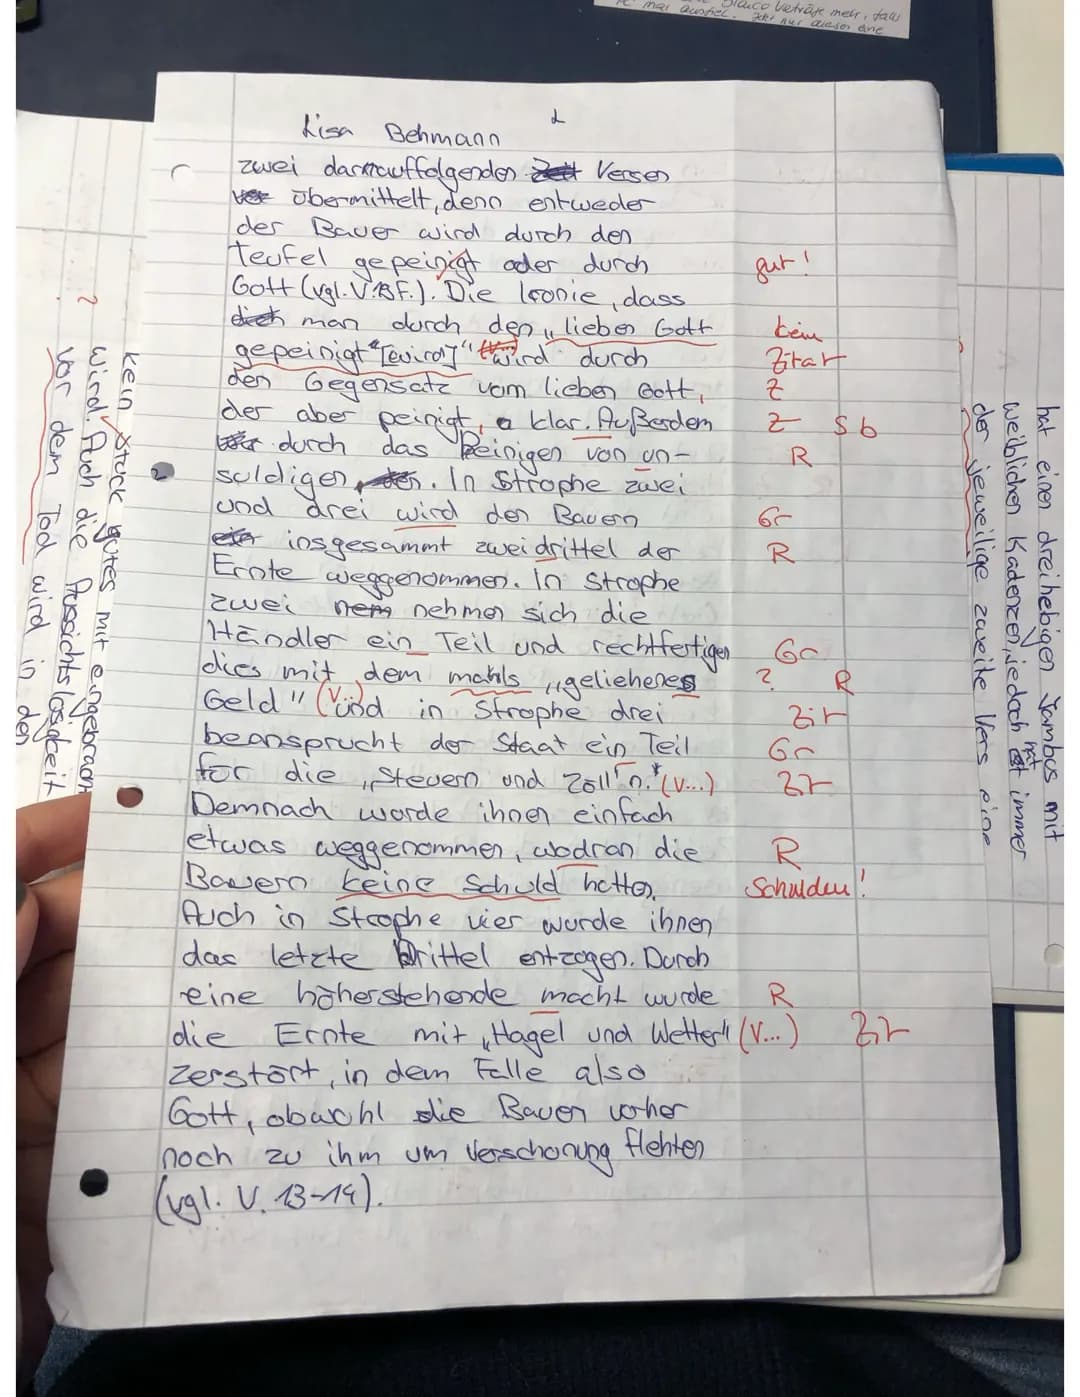 Blanco Verträge mehr, falls
mal ausfiel. Jetzt nur dieser eine
Lisa Behmann
2
zwei darrauffolgenden Versen
übermittelt, denn entweder
der Bauer wird durch den
Teufel gepeinigt oder durch
gut!
Gott (vgl. V.13F.). Die Ironie, dass
man durch den „lieben Gott
kein
gepeinigt" [wird]" wird durch
Zitat
den Gegensatz vom lieben Gott,
Z
der aber peinigt, klar. Außerdem
Z Sb
durch das Peinigen von un-
R
suldigen. In Strophe zwei
und drei wird den Bauern
Gr
insgesammt zweidrittel der
R
Ernte weggenommen. In Strophe
zwei nehmen sich die
Händler ein Teil und rechtfertigen
Gr
dies mit dem mahls „geliehenes
? R
Geld" (V...) und in Strophe drei
Zit
beansprucht der Staat ein Teil
Gr
für die „Steuern und Zöll'n." (V...)
Zit
Demnach wurde ihnen einfach
etwas weggenommen, wodran die
R
Bauern keine Schuld hatten.
Schulden!
Auch in Strophe vier wurde ihnen
das letzte Drittel entzogen. Durch
eine höherstehende macht wurde
R
die Ernte mit „Hagel und Wetter" (V...)
Zit
zerstört, in dem Falle also
Gott, obwohl die Bauen vorher
noch zu ihm um Verschonung flehten
(vgl. V. 13-14).
kein Stück gutes mit eingebracht
wird. Auch die Aussichtslosigkeit
?
vor dem Tod wird in den
hat einen dreihebigen Jambus mit
weiblichen Kadenzen, jedoch hat immer
der jeweilige zweite Vers eine